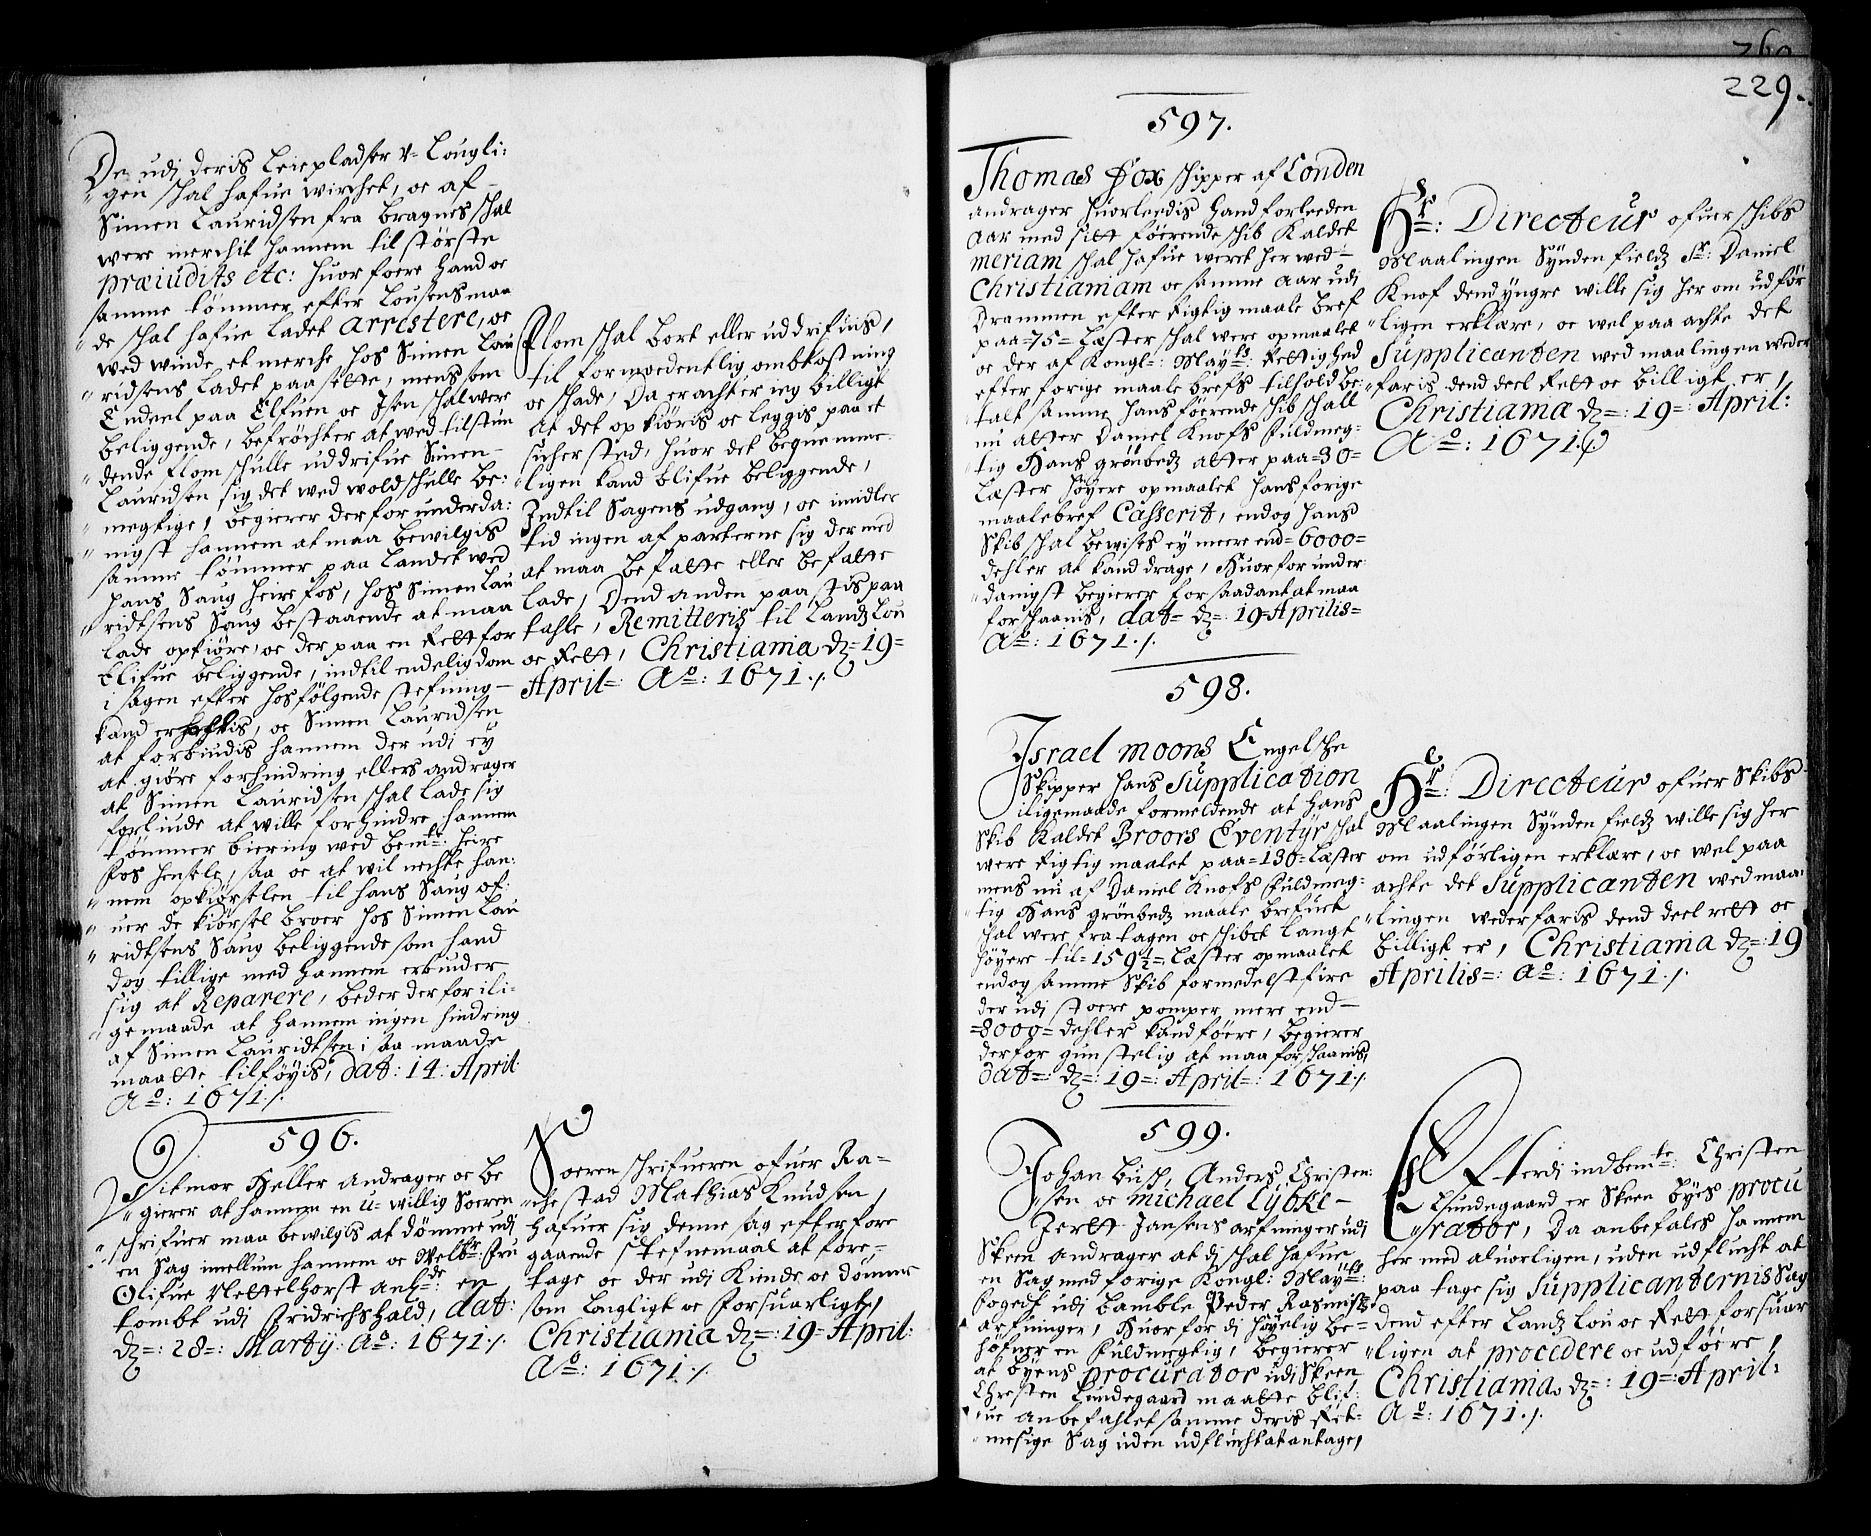 De udi deris Leiepladser u-Lougli:
"gen schal hafue wirchet, oc af
Simen Lauridsen fra Bragnes schal
were merchit hannem til største
præiudits etc: huor foere hand oc
samme tømmer efter Lousens maa
"de schal hafue ladet Arrestere, oc
wed winde et merche hos Simen Lau
"ridsens ladet paa sette, mens som
Endeel paa Elfuen oc Isen schal were
beliggende, befrøchter at wed tilstun
"dende flom schulle uddrifue Simen
Lauridsen sig det wed wold schulle be:
"megtige, begierer derfor underda:
"nigst hannem at maa bewilgis
samme tømmer paa Landet wed
hans Saug heire fos, hos Simen Lau
"ridtsens Saug bestaaende at maa
lade opkiøre, oc der paa en Rett for
blifue beliggende, indtil endelig dom
i sagen efter hosfølgende stefning
kand erholdis, oc Simen Lauridsen
at forbiudis hannem der udi ey
at giøre forhindring ellers andrager
at Simen Lauridsen schal lade sig
forliude at wille forhindre hannem
tømmer biering wed bemte: heire
fos hensle, saa oc at wil nechte han:
"nem opkiørselen til hans Saug of:
"uer de kiørsel broer hos Simen Lau
"ridtsens Saug beliggende som hand
dog tillige med hannem erbuder
sig at Reparere, beder derfor ili:
"gemaade at hannem ingen hindring
af Simen Lauridtsen i saa maade
maatte tilføyis, dat: 14: April:
Ao: 1671./.
Flom schal bort eller uddrifuis,
til formoedentlig ombkostning
oc schade, Da erachter ieg billigt
At det opkiøris oc leggis paa et
sicher sted, huor det beqvemme
"ligen kand blifue beliggende,
Indtil Sagens udgang, oc imidler
tid ingen af parterne sig dermed
at maa befatte eller befatte
lade, Dend anden paa stis paa
tahle, Remitteris til Landz Lou
oc Rett, Christiania dz=19=
April=: Ao: 1671./.
596.
Ditmor Heller Andrager oc be
"gierer at hannem en u-willig Soren
"schrifuer maa bewilgis at dømme udi
en Sag imellum hannem oc Welbr: Fru
Olifue Nettelhorst anhde: en
tombt udi Fridrichshald, dat:
dz=: 28=: Martij: Ao: 1671./.
Soeren schrifueren ofuer Ra=
"chestad Mathias Knudsen,
hafuer sig denne sag efter fore
gaaende stefnemaal at fore=
tage oc der udi Kiende oc dømme
som Lougligt oc forsuarligt,
Christiania dz=: 19= April:
Ao: 1671./.
229.
597.
Thomas Fox schipper af London
andrager huorledis hand forleden
Aar med sitt føerende schib Kaldet
meriam schal hafue weret her wed
Christiamam oc samme aar udi
Drammen efter rigtig maale bref
paa=75= Læster schal were opmaalet
oc der af Kongl=: Mayts: Rettighed
efter forige maale brefs tilhold be:
"talt samme hans føerende schib schall
nu atter Daniel Knofs fuldmeg=
"tig Hans Grønbech atter paa=30=
Læster høyere opmaalet hans forige
maalebref Casserit, endog hans
Skib schal bewises ey meere end=6000=
dehler at kand drage, Huorfor under
"danigst begierer forsaadant at maa
forschaanis, dat= dz=: 19=Aprilis=
Ao=: 1671./.
Hr=: Directeur ofuer schibs
Maalingen Synden fieldz Sr: Daniel
Knof dend yngre wille sig her om udfør
"ligen erklære, oc wel paa achte det
Supplicanten wed maalingen weder
"faris dend deel Rett oc billigt er,
Christiania dz=: 19=: April:
Ao: 1671.
598.
Israel moons Engelsche
Skipper hans Supplication
iligemaade formeldende at hans
Skib Kaldet Broors Eventyr schal
were rigtig maalet paa=130=Læster
mens nu af Daniel Knofs fuldmeg=
"tig Hans Grønbech maale brefuet
schal were fratagen oc schibet langt
høyere til=159½= Læster opmaalet
endog samme Skib formedelst fire
der udi stoere pomper mere end
=8000= dehler kand føere, begierer
derfor gunstelig at maa forschaanis,
dat=: dz=: 19=: April=: 1671./.
Hr=: Directeur ofuer Skibs
Maalingen Synden fieldz wille sig her
om udførligen erklære, oc wel paa
achte det Supplicanten wed maa:
"lingen wederfaris dend deel rett oc
billigt er, Christiania dz=: 19
Aprilis=: Ao: 1671./.
599.
Johan Busch, Anders, Christen:
"sen oc michael Lybke
Jertt Jansens arfuinger udi
Skeen Andrager at di schal hafue
en Sag med forige Kongl: Mayts:
fogedt udi bamble Peder Rasmuss:
arfuinger, Huorfor di høyelig be=
høfuer en fuldmegtig, begierer
at byens procurator udi Skeen
Christen Lundegaard maatte blif:
"ue anbefahlet samme deris ret=
"mesige Sag uden udflucht at antage,
Efterdi indbemte: Christen
Lundegaard er Skeen byes procu
"rator, Da anbefales hannem
her med aluorligen, uden udflucht at
paa tage sig Supplicanternis Sag
dend efter Landz Lou oc Rett forsuar
"ligen at procedere oc udføere,
Christiania dz=: 19=: April:
Ao: 1671./.